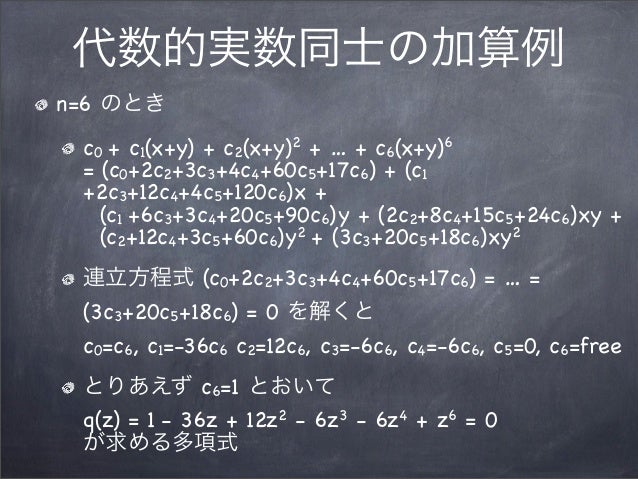 代数的実数同士の加算例
n=6 のとき
c₀ + c₁(x+y) + c₂(x+y)² + ... + c₆(x+y)⁶
= (c₀+2c₂+3c₃+4c₄+60c₅+17c₆) + (c₁
+2c₃+12c₄+4c₅+120c₆)x +
(c₁ +6c₃+3c₄+20c₅+90c₆)y + (2c₂+8c₄+15c₅+24c₆)xy +
(c₂+12c₄+3c₅+60c₆)y² + (3c₃+20c₅+18c₆)xy²
連立方程式 (c₀+2c₂+3c₃+4c₄+60c₅+17c₆) = ... =
(3c₃+20c₅+18c₆) = 0 を解くと
c₀=c₆, c₁=-36c₆ c₂=12c₆, c₃=-6c₆, c₄=-6c₆, c₅=0, c₆=free
とりあえず c₆=1 とおいて
q(z) = 1 - 36z + 12z² - 6z³ - 6z⁴ + z⁶ = 0
が求める多項式